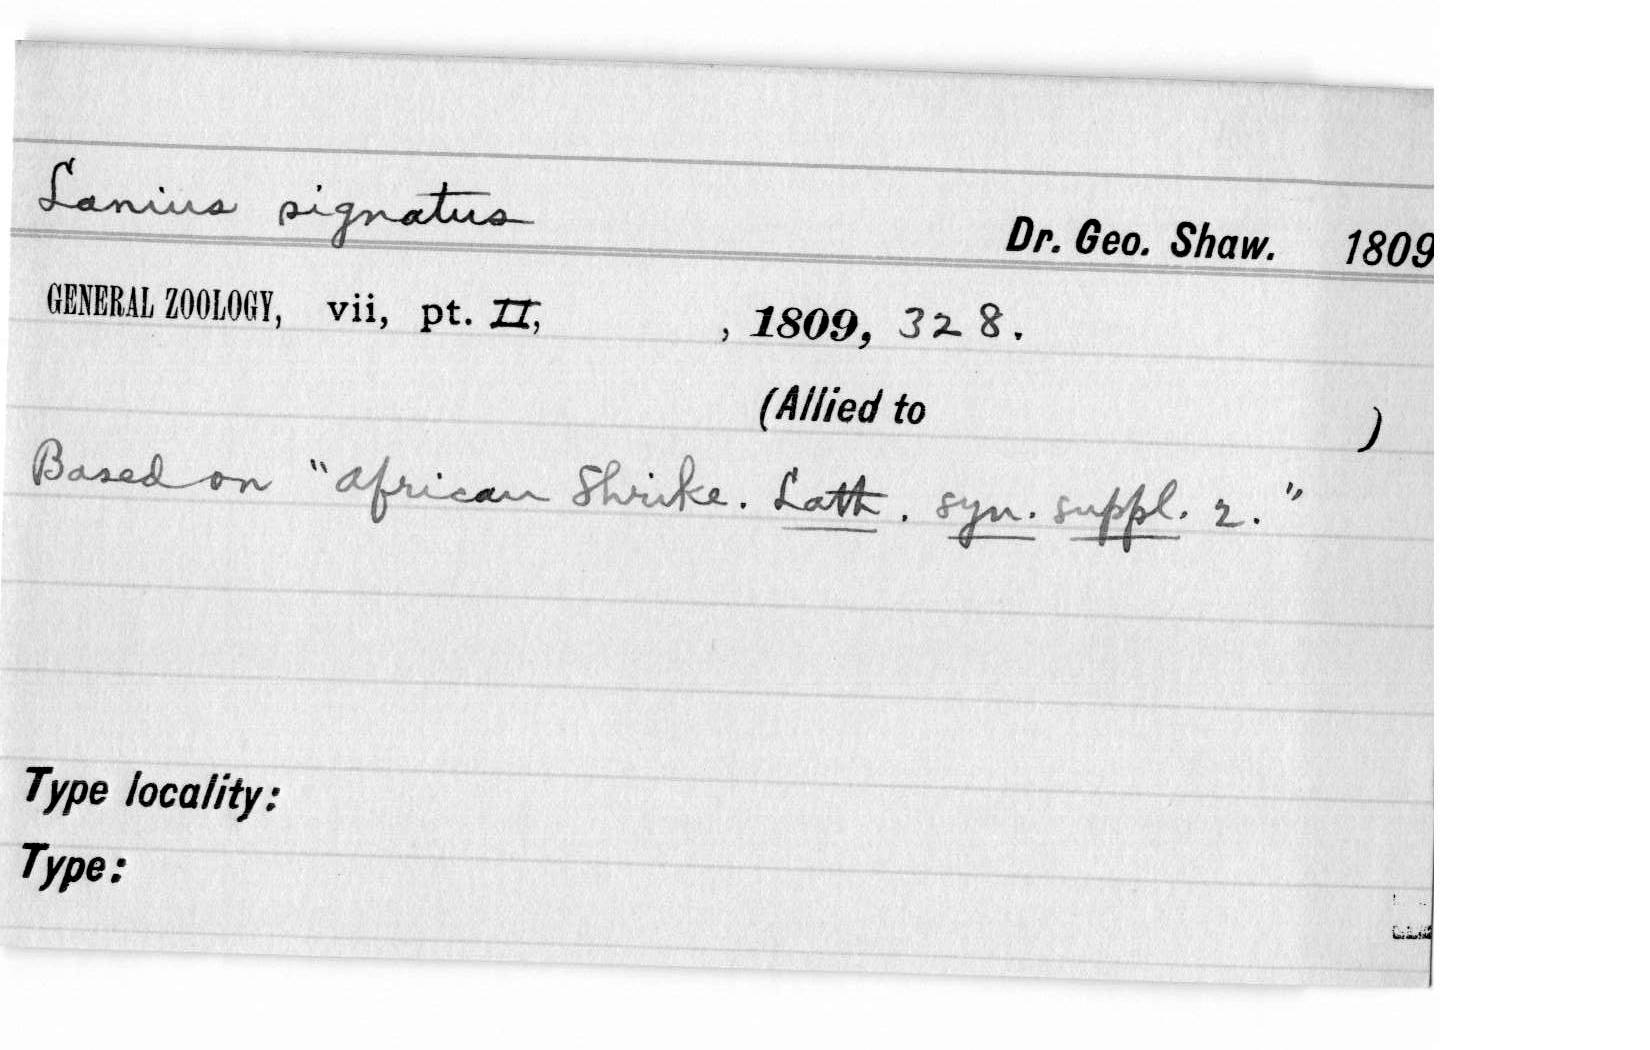 Lanius signatus Dr. Geo. Shaw. 1809
GENERAL ZOOLOGY, vii, pt. II, , 1809, 328.
(Allied to )
Based on "African Shrike. Lath. syn. suppl. 2."
Type locality:
Type: